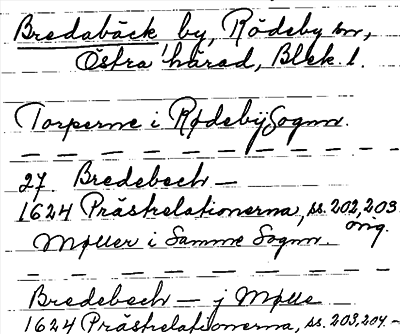 Bredabäck by, Rödeby sn,
Östra härad, Blek. l.
Torperne i RødebÿSognn.
27. Bredebech —
1624 Prästrelationerna, ss. 202, 203
orig.
Møller i Samme Sognn.
Bredebech — j Mølle
1624 Prästrelationerna, ss. 203, 204. —